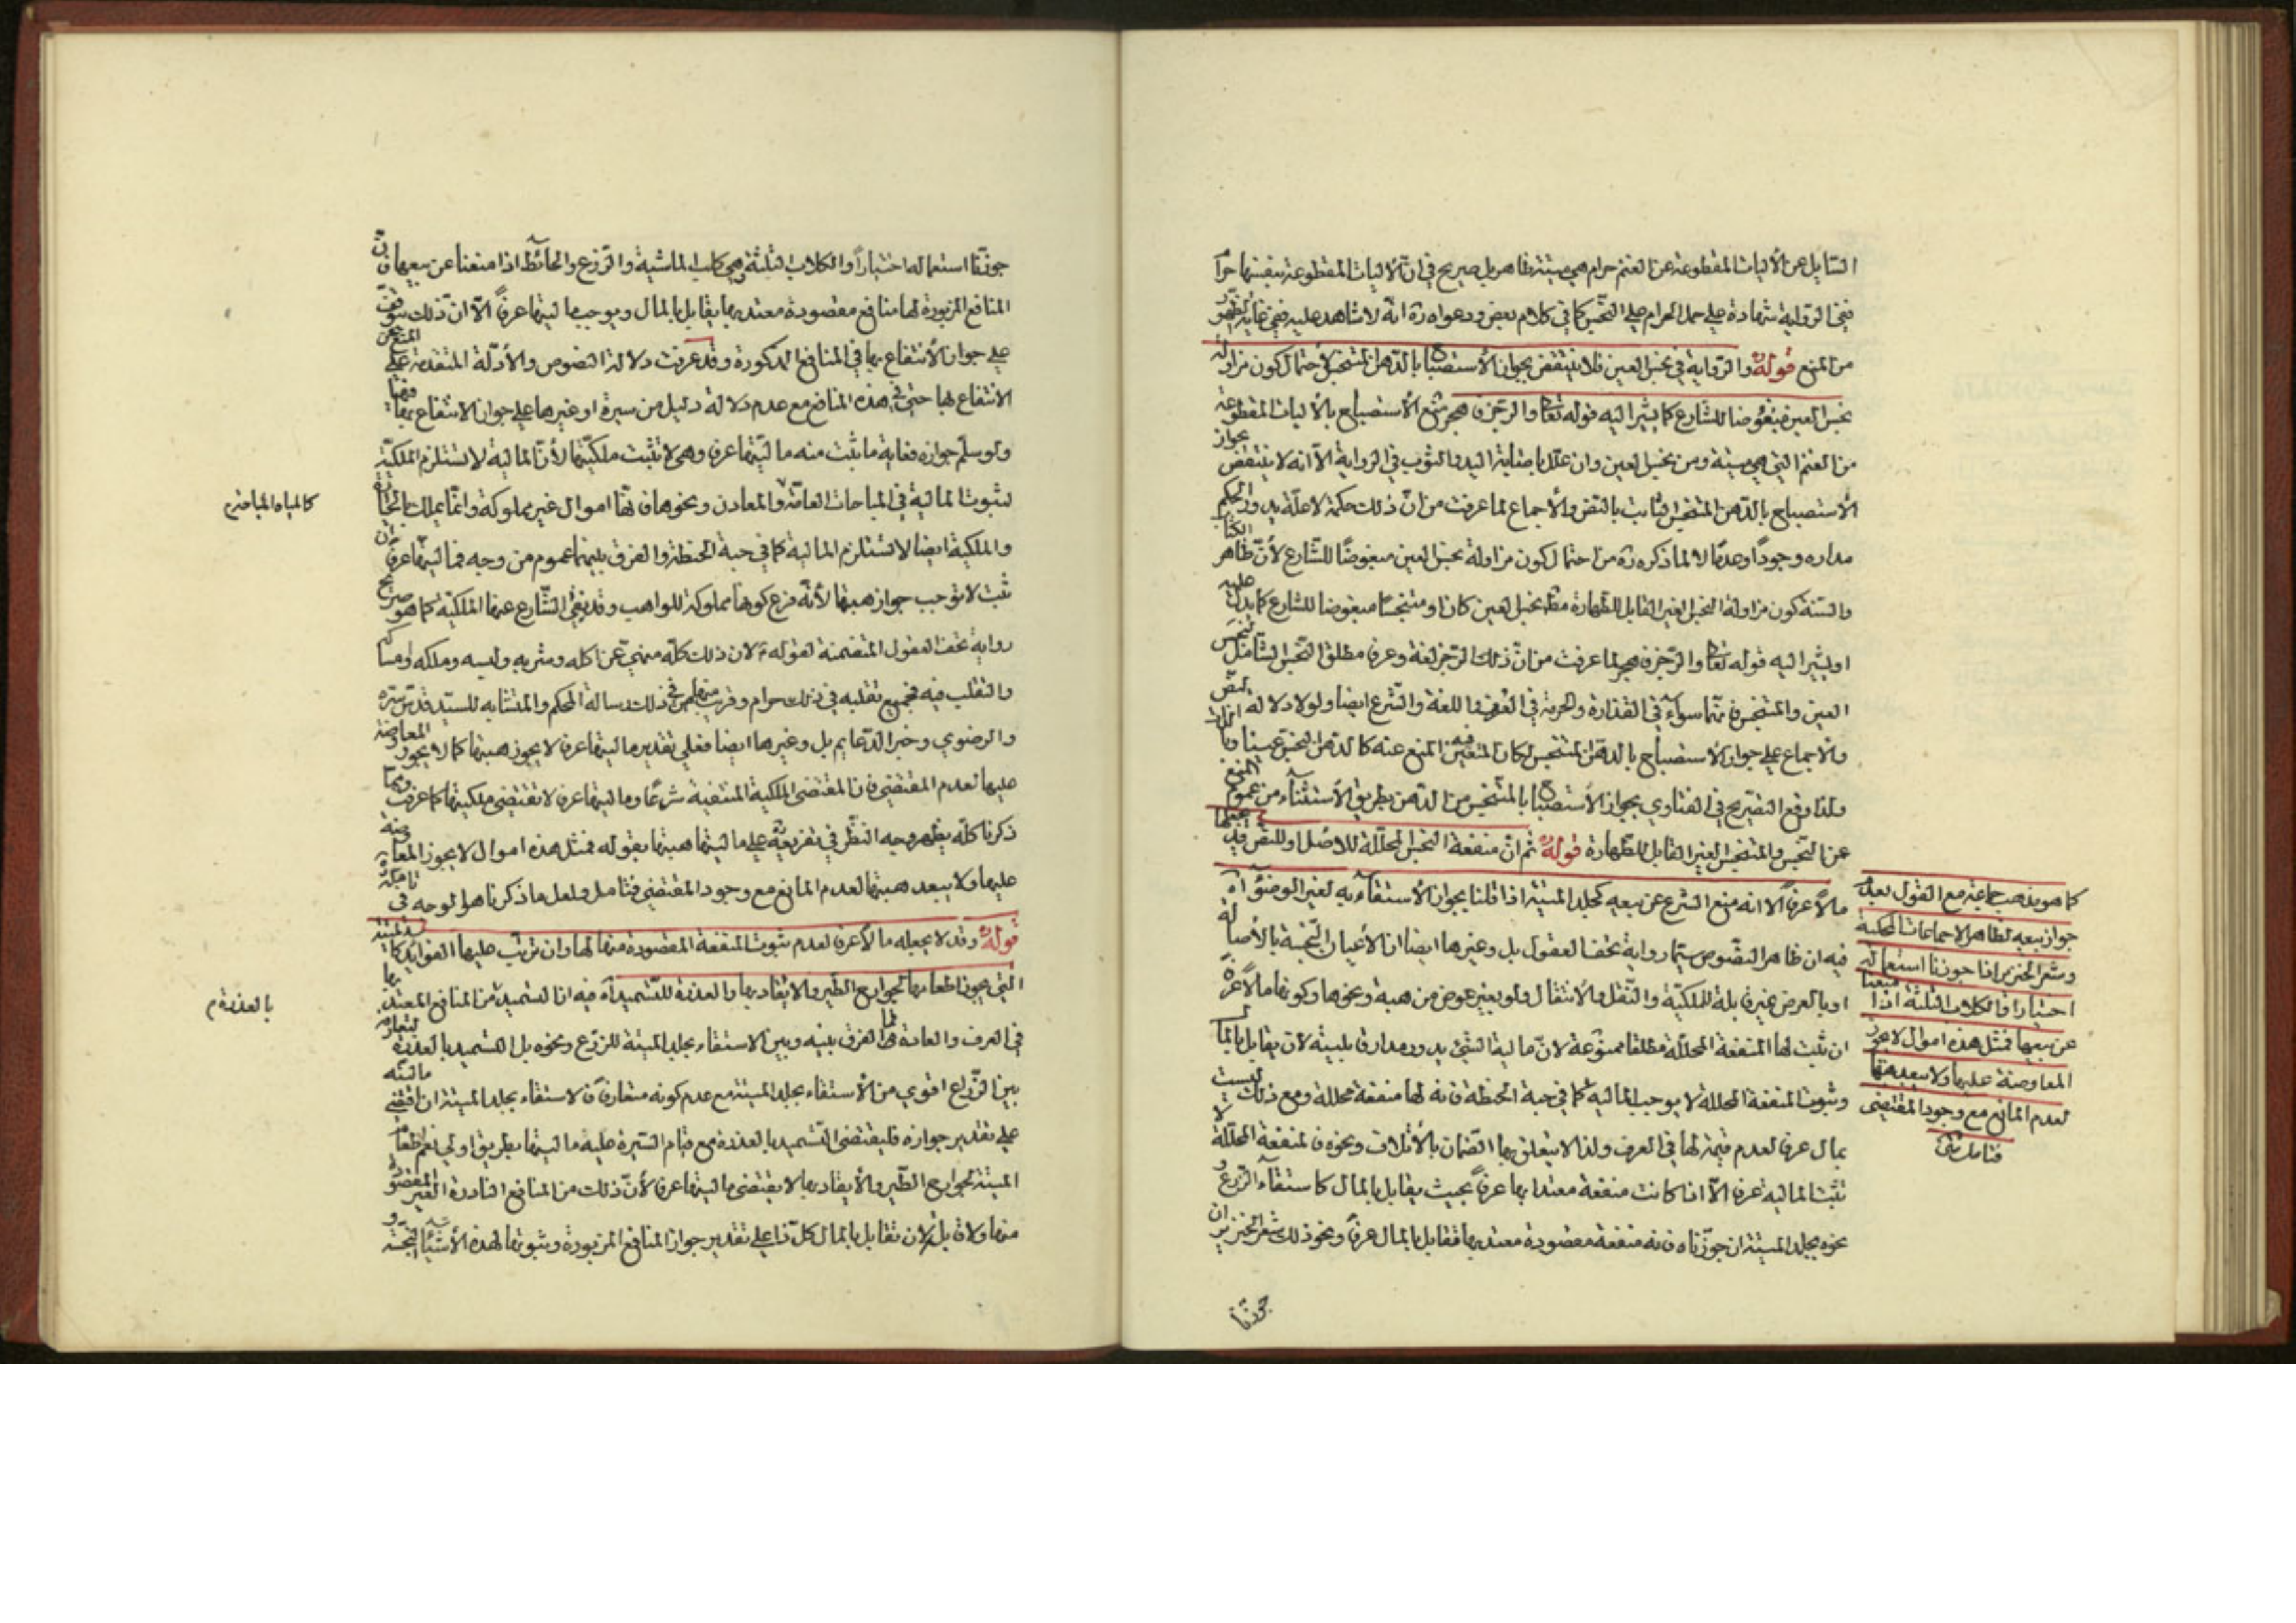 السايل عن الأليات المقطوعة عن الغنم حرام هي ميتة ظاهر بل صريح في ان الأليات المقطوعة بنفسها حرام
ففي الرواية شهادة على حمل الحرام على النجس كما في كلام بعض ودعواه ره انه لا شاهد عليه ففي غاية الظهور
من المنع قوله والرواية في نجس العين فلا ينتقض بجواز الأستصباح بالدهن المتنجس لأحتمال كون مزاولة
نجس العين مبغوضا للشارع كما يشير اليه قوله تعالى والرجز فاهجر منع الأستصباح بالأليات المقطوعة
من الغنم التي هي ميتة ومن نجس العين وان علل باصابة اليد والثوب في الرواية الا انه لا ينتقض بجواز
الأستصباح بالدهن المتنجس الثابت بالنص والأجماع لما عرفت من ان ذلك حكمة لا علة يدور الحكم
مداره وجودا وعدما لا لما ذكره ره من احتمال كون مزاولة نجس العين مبغوضا للشارع لأن ظاهر الكتاب
والسنة كون مزاولة النجس الغير القابل للطهارة مطلقا نجس العين كان او متنجسا مبغوضا للشارع كما يدل عليه
او يشير اليه قوله تعالى والرجز فاهجر لما عرفت من ان ذلك الرجز لغة وعرفا مطلق النجس الشامل لنجس
العين والمتنجس فانهما سواء في القذارة والحرمة في العرف واللغة والشرع ايضا ولولا دلالة النص
والاجماع على جواز الأستصباح بالدهن المتنجس لكان المتعين فيه المنع عنه كالدهن النجس عينا
ولذا وقع التصريح في الفتاوي بجواز الأستصباح بالمتنجس من الدهن بطريق الأستثناء من عموم المنع
عن النجس والمتنجس الغير القابل للطهارة قوله ثم ان منفعة النجس المحللة للاصل او للنص قد يجعلها
مالا عرفا الا انه منع الشرع عن بيعه كجلد الميتة اذا قلنا بجواز الأستقاء به لغير الوضوء اه
فيه ان ظاهر النصوص سيما رواية تحف العقول بل وغيرها ايضا ان الأعيان النجسة بالأصالة
او بالعرض غير قابلة للملكية والنقل والأنتقال ولو بغير عوض من هبة ونحوها وكونها مالا عرفا
ان ثبت لها المنفعة المحللة مطلقا ممنوعة لان مالية الشئ يدور مدار قابليته لأن يقابل بالمال
وثبوت المنفعة المحللة لا يوجب المالية كما في حبة الحنطة فانه لها منفعة محللة ومع ذلك ليست
بمال عرفا لعدم قيمة لها في العرف ولذا لا يتعلق بها الضمان بالأتلاف ونحوه فالمنفعة المحللة لا
تثبت المالية عرفا الا اذا كانت منفعة معتدا بها عرفا بحيث يقابل بالمال كاستقاء الزرع و
نحوه بجلد الميتة ان جوزناه فانه منفعة مقصودة معتد بها فتقابل بالمال عرفا ونحو ذلك شعر الخنزير ان
جوزنا
كما هو مذهب جماعة مع القول بعدم
جواز بيعه لظاهر الاجماعات المحكية
وشعر الخنزير اذا جوزنا استعماله
اختيارا والكلاب الثلثة اذا منعنا
عن بيعها فمثل هذه اموال لا يجوز
المعاوضة عليها ولا يبعد هبتها
لعدم المانع مع وجود المقتضى
فتامل
جوزنا استعماله اختيارا والكلاب الثلثة وهي كلب الماشية والزرع والحائط اذا منعنا عن بيعها فان
المنافع المزبورة لها منافع مقصودة معتد بها يقابل بالمال ويوجب ماليتها عرفا الا ان ذلك متوقف
على جواز الأنتفاع بها في المنافع المذكورة وقد عرفت دلالة النصوص والأدلة المتقدمة على المنع عن
الانتفاع لها حتى في هذه المنافع مع عدم دلالة دليل من سيرة او غيرها على جواز الانتفاع بها فيها
ولو سلم جوازه فغاية ما يثبت منه ماليتها عرفا وهي لا تثبت ملكيتها لأن المالية لا تستلزم الملكية
لثبوت المالية في المباحات العامة والمعادن ونحوها فانها اموال غير مملوكة وانما يملك بالحيازة
كالمياه المباحة م
والملكية ايضا لا تستلزم المالية كما في حبة الحنطة والفرق بينهما عموم من وجه فماليتها عرفا ان
ثبت لا توجب جواز هبتها لأنه فرع كونها مملوكة للواهب وقد نفى الشارع عنها الملكية كما هو صريح
رواية تحف العقول المتضمنة لقوله ع لان ذلك كله منهي عن اكله وشربه ولبسه وملكه وامساكه
والتقلب فيه فجميع تقلبه في ذلك حرام وقريب منها ما في ذلك رسالة المحكم والمتشابه للسيد قدس سره
والرضوي وخبر الدعايم بل وغيرها ايضا فعلى تقدير ماليتها عرفا لا يجوز هبتها كما لا يجوز المعاوضة
عليها لعدم المقتضى فان المقتضى الملكية المنتفية شرعا وماليتها عرفا لا تقتضي ملكيتها كما عرفت ومما
ذكرنا كله يظهر وجه النظر في تفريعه على ماليتها هبتها بقوله فمثل هذه اموال لا يجوز المعاوضة
عليها ولا يبعد هبتها لعدم المانع مع وجود المقتضى فتامل ولعل ما ذكرنا هو الوجه في
قوله وقد لا يجعله مالا عرفا لعدم ثبوت المنفعة المقصودة منها لها وان ترتب عليها الفوايد كالميتة
التي يجوز اطعامها لجوارح الطير والايقاد بها والعذرة للتسميد اه فيه ان التسميد من المنافع المعتد بها
بالعذرة م
في العرف والعادة فما الفرق بينه وبين الاستقاء بجلد الميتة للزرع ونحوه بل التسميد بالعذرة
بين الزراع اقوي من الأستقاء بجلد الميتة مع عدم كونه متعارفا فالاستقاء بجلد الميتة ان اقتضى ماليته
على تقدير جوازه فليقتضى التسميد بالعذرة مع قيام السيرة عليه ماليتها بطريق اولى نعم اطعام
الميتة لجوارح الطير والأيقاد بها لا يقتضى ماليتها عرفا لأن ذلك من المنافع النادرة الغير المقصودة
منها ولا قابلة لان تقابل بالمال كل ذا على تقدير جواز المنافع المزبورة وثبوتها لهذه الأشياء النجسة و